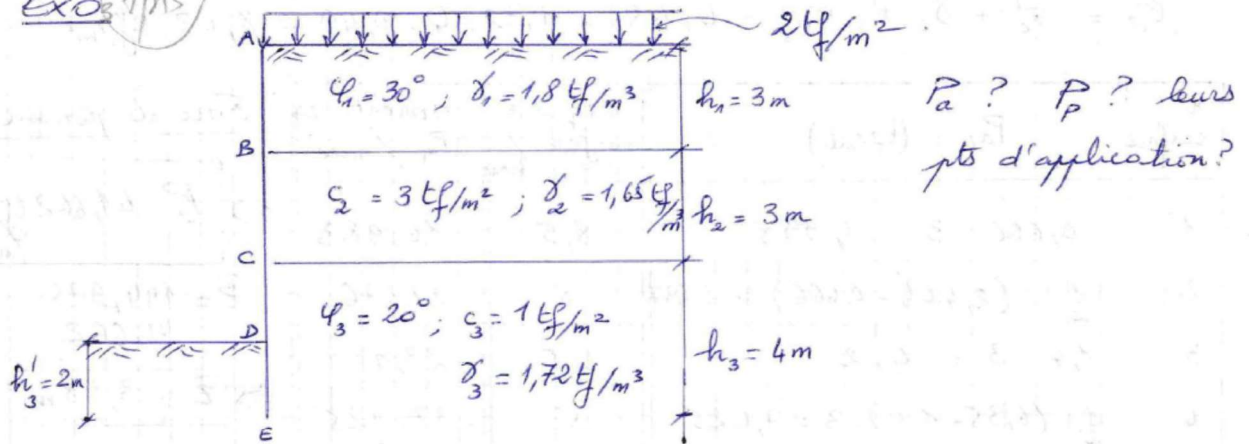 Exo3 4pts
2 tf/m²
A
φ₁ = 30° ; γ₁ = 1,8 tf/m³
h₁ = 3m
Pa ? Pp ? leurs
pts d'application?
B
c₂ = 3 tf/m² ; γ₂ = 1,65 tf/m³
h₂ = 3m
C
φ₃ = 20° ; c₃ = 1 tf/m²
D
γ₃ = 1,72 tf/m³
h₃ = 4m
h'₃ = 2m
E